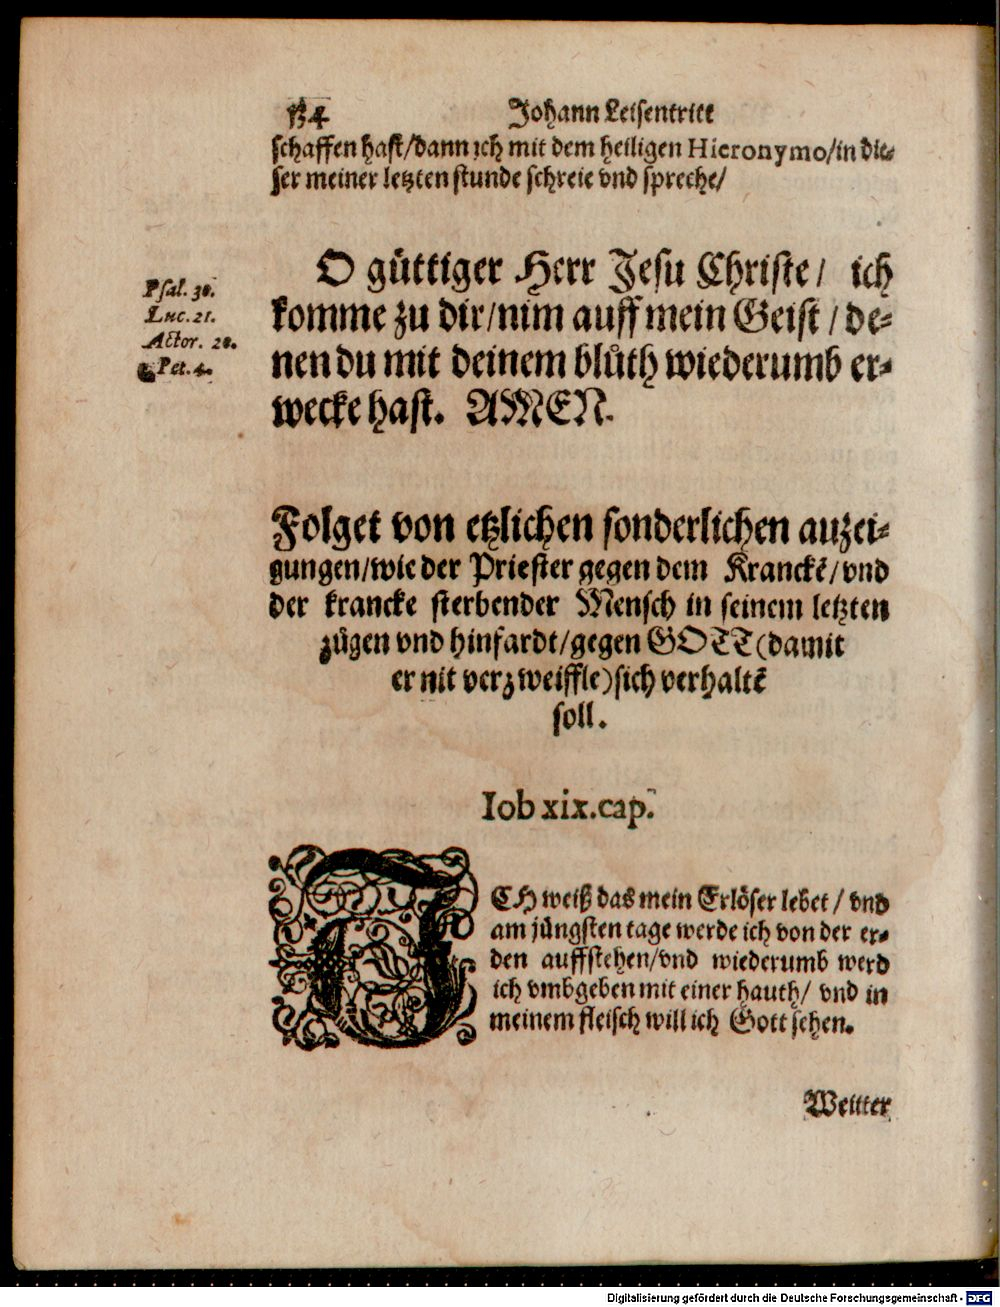 134 Johann Leisentritt
schaffen hast/dann ich mit dem heiligen Hieronymo/in die-
ser meiner letzten stunde schreie vnd spreche/
O güttiger Herr Jesu Christe/ ich
komme zu dir/nim auff mein Geist/de-
nen du mit deinem blůth wiederumb er-
wecke hast. AMEN.
Psal. 30.
Luc. 21.
Actor. 20.
Pet. 4.
Folget von etzlichen sonderlichen auzei-
gungen/wie der Priester gegen dem Kranckẽ/vnd
der krancke sterbender Mensch in seinem letzten
zügen vnd hinfardt/gegen GOTT(damit
er nit verzweiffle)sich verhaltẽ
soll.
Iob xix.cap.
ICH weiß das mein Erlöser lebet/vnd
am jüngsten tage werde ich von der er-
den auffstehen/vnd wiederumb werd
ich vmbgeben mit einer hauth/ vnd in
meinem fleisch will ich Gott sehen.
Weitter
Digitalisierung gefördert durch die Deutsche Forschungsgemeinschaft - DFG